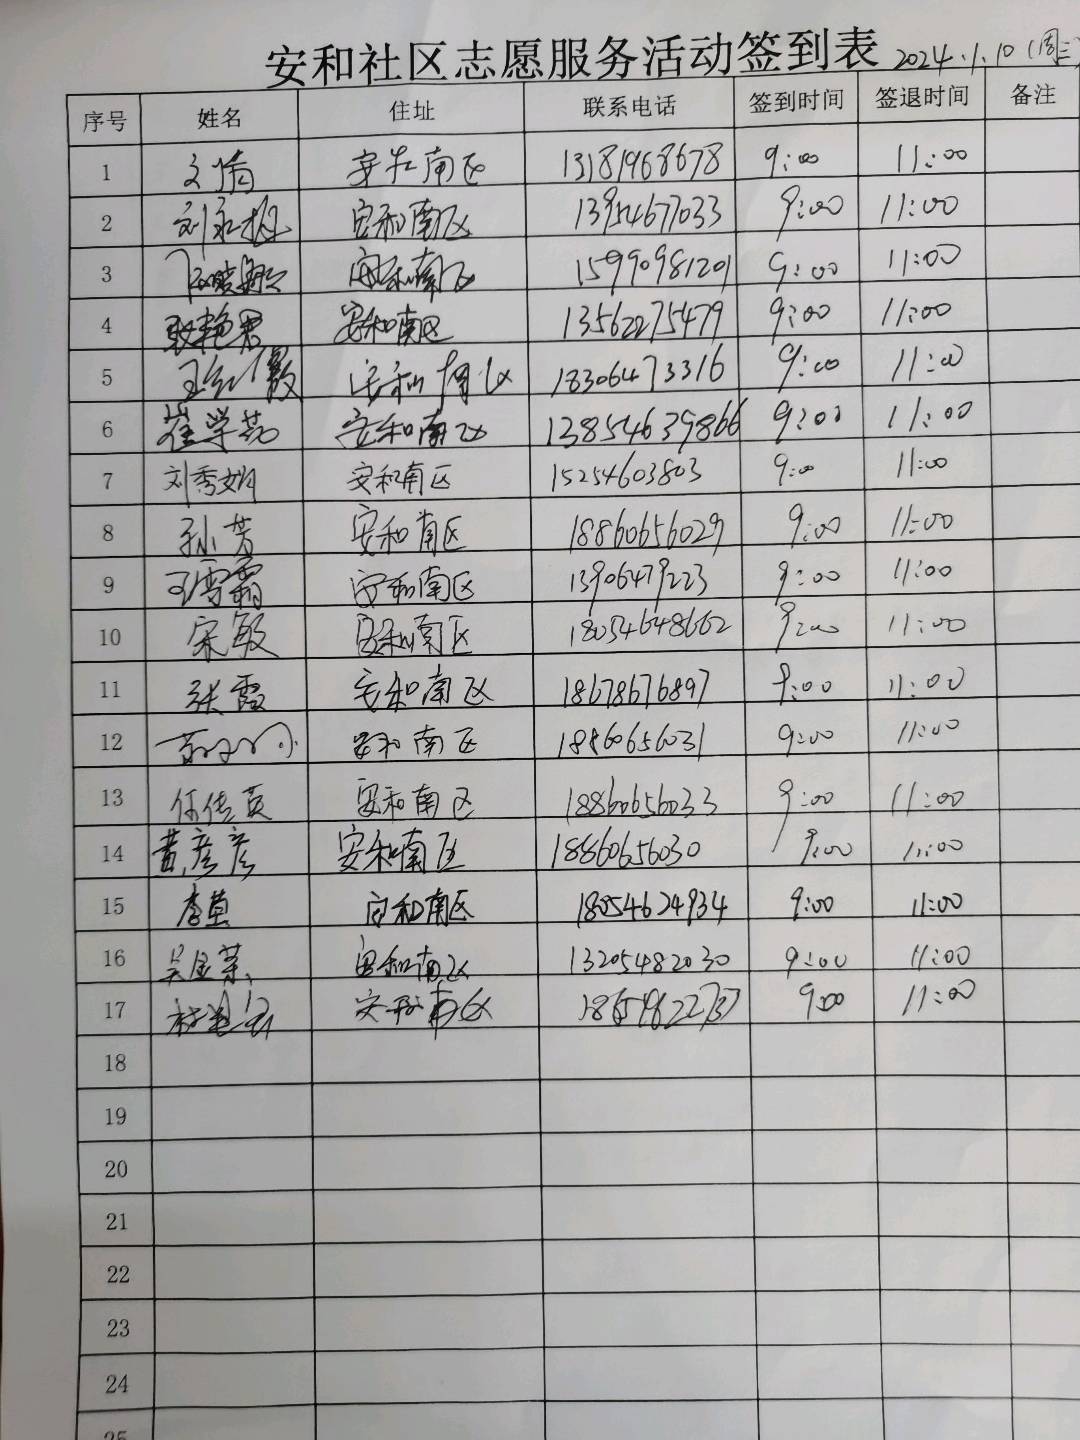 安和社区志愿服务活动签到表 2024.1.10(周三)
序号 姓名 住址 联系电话 签到时间 签退时间 备注
1 文倩 安和南区 13181968678 9:00 11:00
2 安和南区 13954677033 9:00 11:00
3 安和南区 15990981201 9:00 11:00
4 耿艳君 安和南区 13562275479 9:00 11:00
5 安和南区 18306473316 9:00 11:00
6 崔学茹 安和南区 13854639866 9:00 11:00
7 刘秀娟 安和南区 15254603803 9:00 11:00
8 孙芳 安和南区 18860656029 9:00 11:00
9 王雪霜 安和南区 13906479223 9:00 11:00
10 宋敏 安和南区 18054648662 9:00 11:00
11 张霞 安和南区 18678676897 9:00 11:00
12 安和南区 18860656031 9:00 11:00
13 任传英 安和南区 18860656033 9:00 11:00
14 黄彦彦 安和南区 18860656030 9:00 11:00
15 李莫 安和南区 18054624934 9:00 11:00
16 吴金荣 安和南区 13205482030 9:00 11:00
17 安和南区 9:00 11:00
18
19
20
21
22
23
24
25